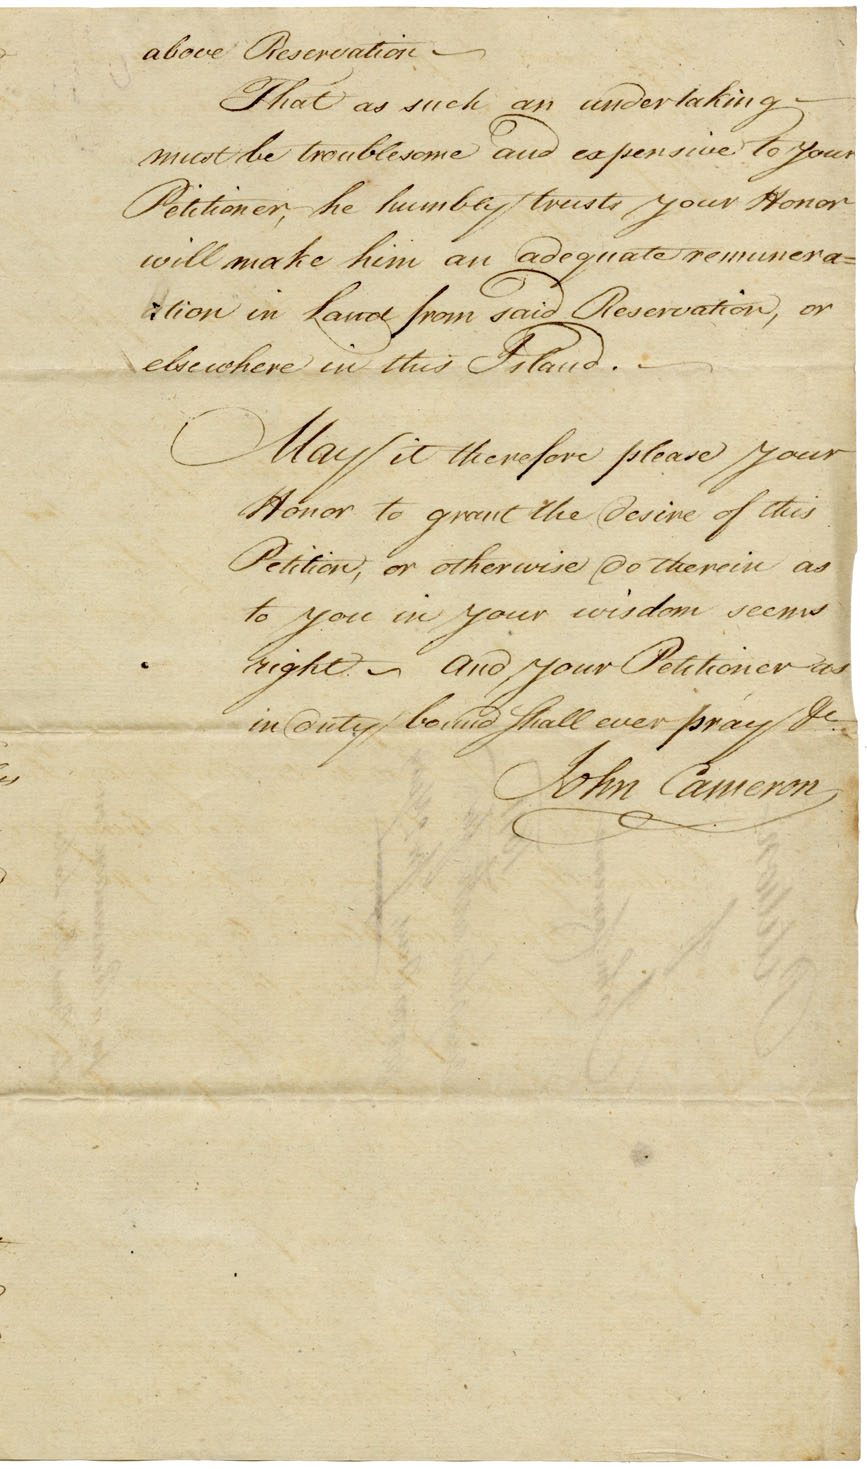 above Reservation —
That as such an undertaking —
must be troublesome and expensive to your
Petitioner, he humbly trusts your Honor
will make him an adequate remunera=
:tion in Land from said Reservation, or
elsewhere in this Island. —
May it therefore please your
Honor to grant the desire of this
Petition, or otherwise do therein as
to you in your wisdom seems
right — And your Petitioner as
in duty bound shall ever pray &c
John Cameron